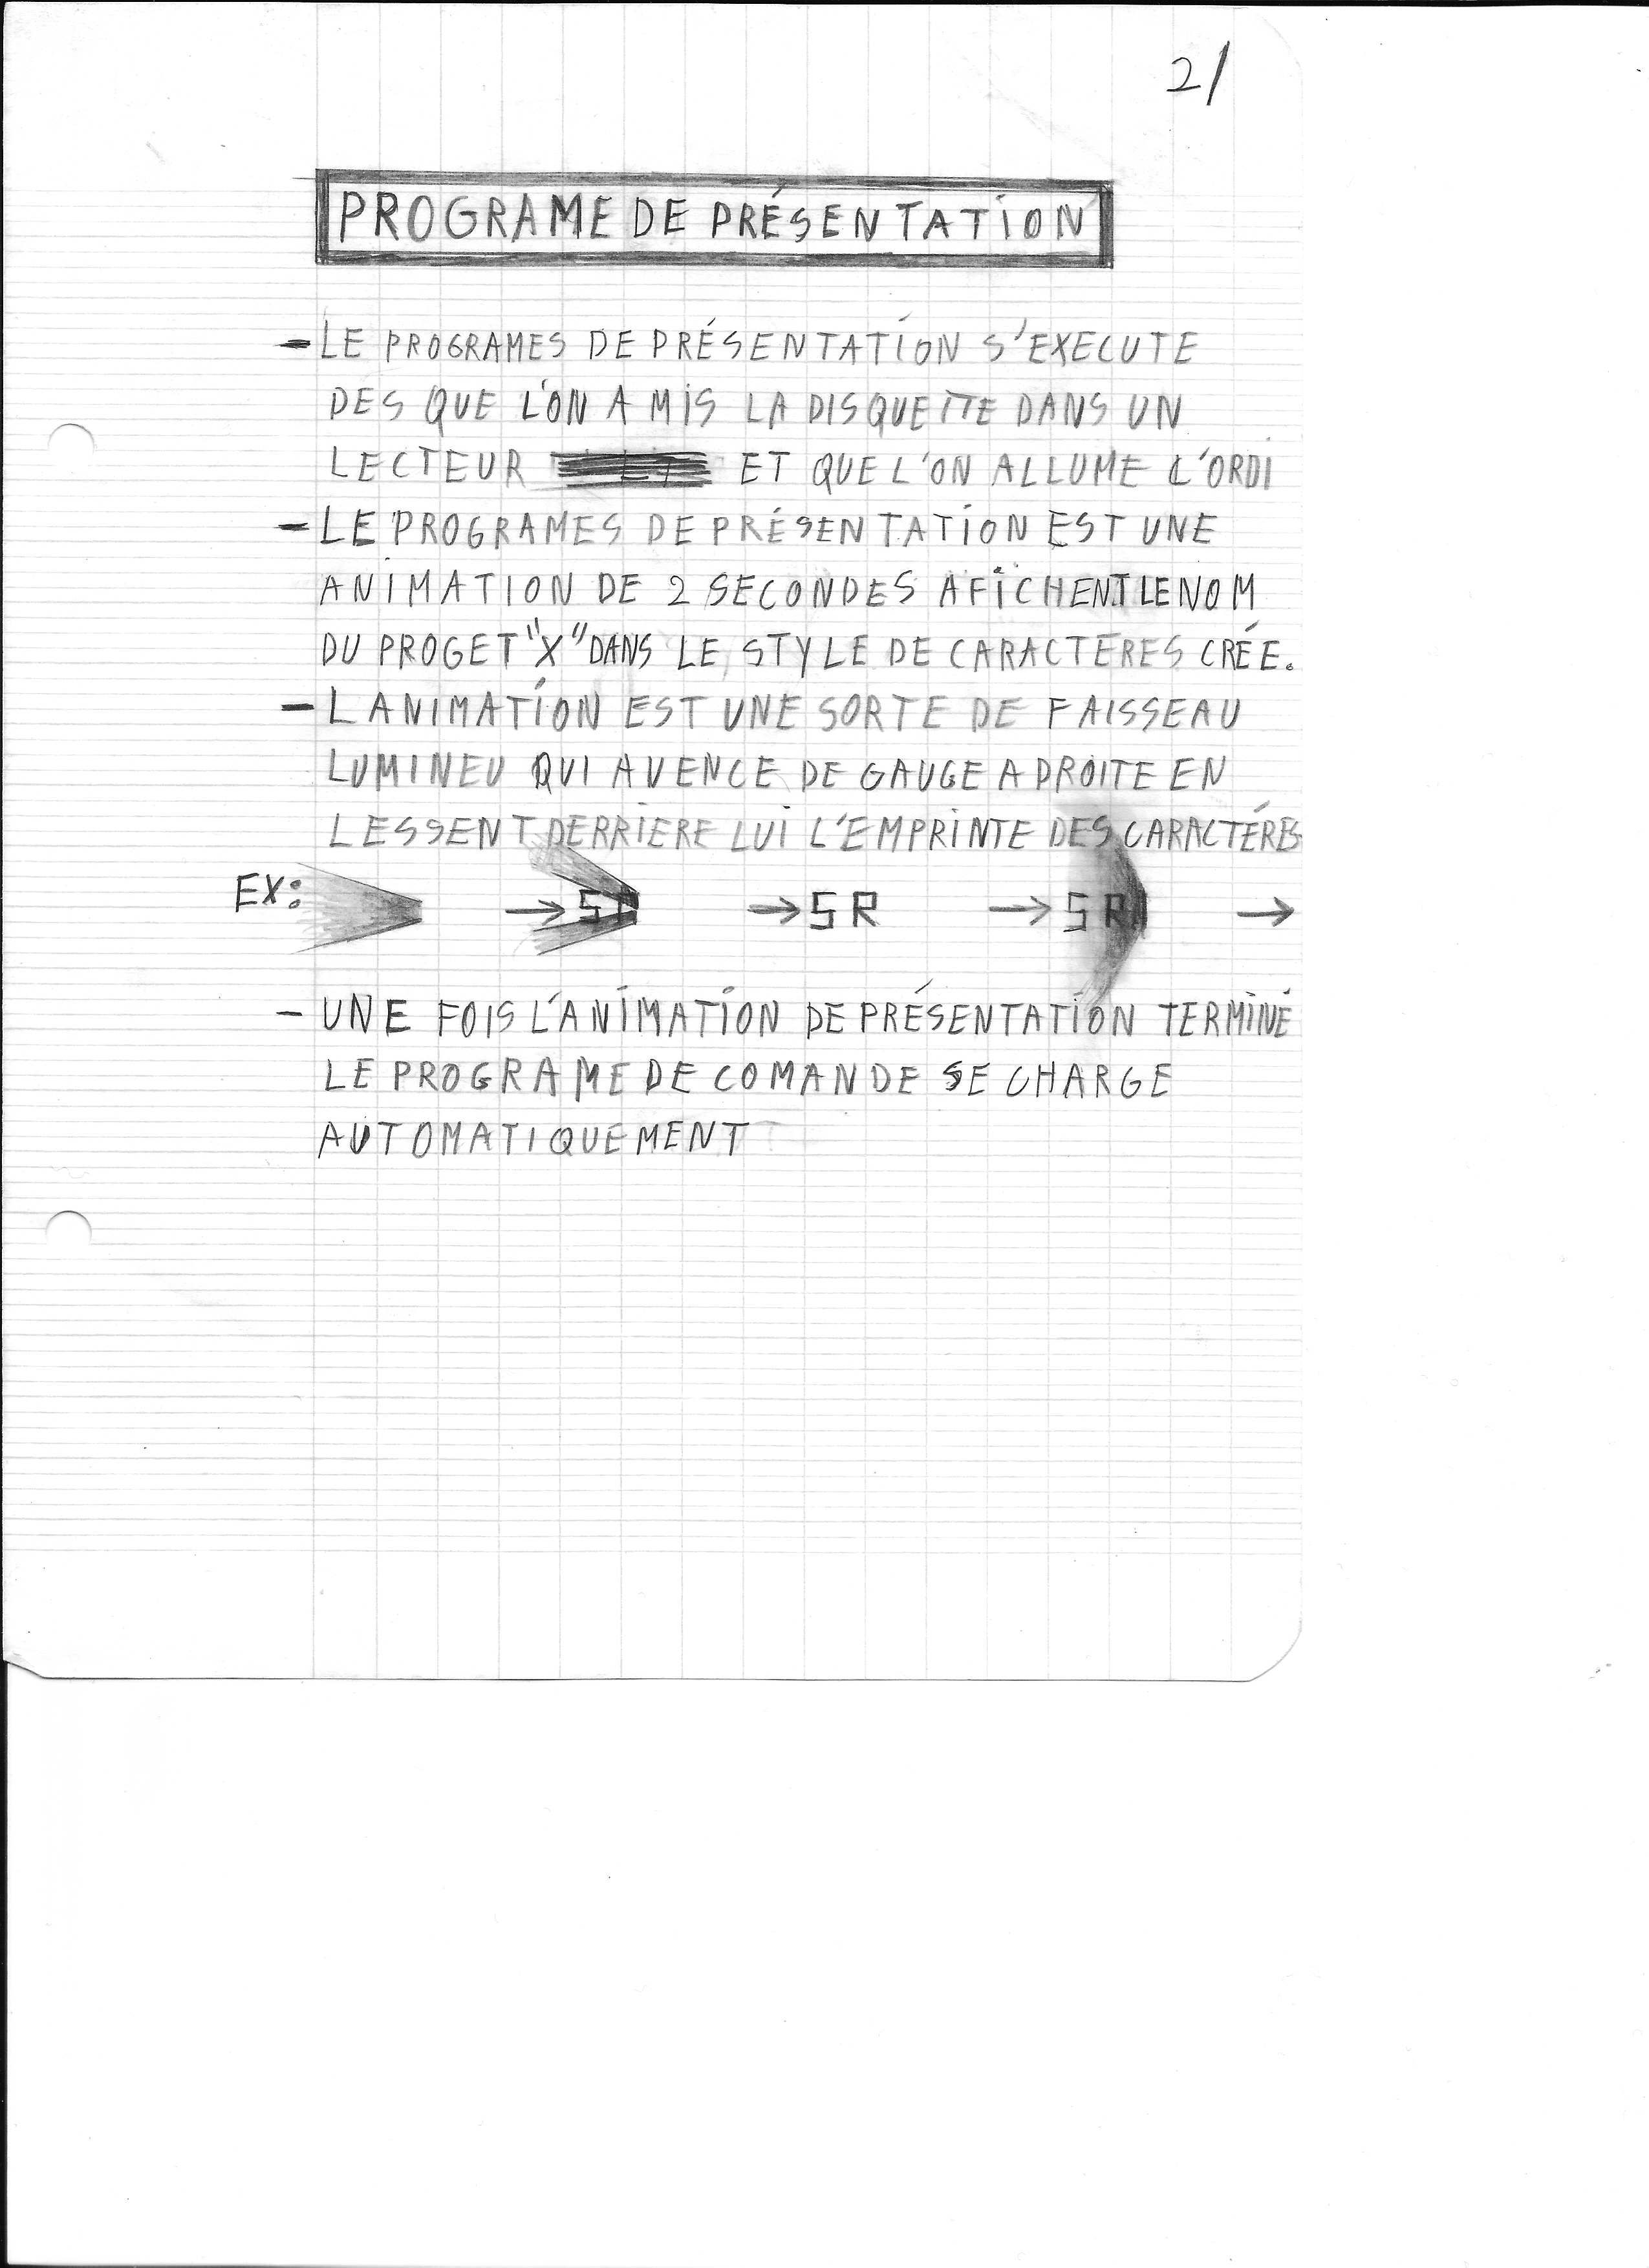 2/
PROGRAME DE PRÉSENTATION
- LE PROGRAMES DE PRÉSENTATION S'EXECUTE
DES QUE L'ON A MIS LA DISQUETTE DANS UN
LECTEUR ET QUE L'ON ALLUME L'ORDI
- LE PROGRAMES DE PRÉSENTATION EST UNE
ANIMATION DE 2 SECONDES AFICHENT LE NOM
DU PROGET "X" DANS LE STYLE DE CARACTERES CRÉE.
- LANIMATION EST UNE SORTE DE FAISSEAU
LUMINEU QUI AVENCE DE GAUGE A DROITE EN
LESSENT DERRIERE LUI L'EMPRINTE DES CARACTÉRES
EX: → SR → SR → SR →
- UNE FOIS L'ANIMATION DE PRÉSENTATION TERMINÉ
LE PROGRAME DE COMANDE SE CHARGE
AUTOMATIQUEMENT